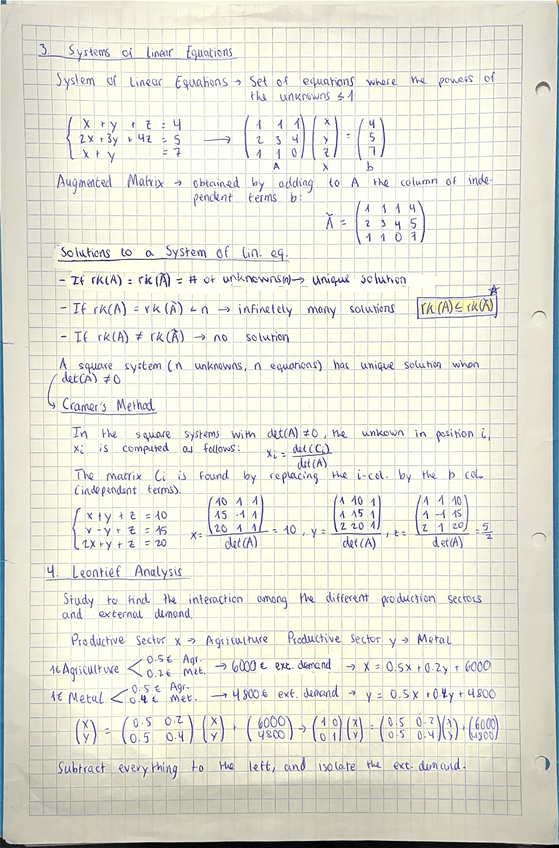 3. Systems of Linear Equations
System of Linear Equations → Set of equations where the powers of
the unknowns ≤ 1
x + y + z = 4
2x + 3y + 4z = 5
x + y = 7
→ (1 1 1; 2 3 4; 1 1 0) (x; y; z) = (4; 5; 7)
A x b
Augmented Matrix → obtained by adding to A the column of inde-
pendent terms b:
Ã = (1 1 1 4; 2 3 4 5; 1 1 0 7)
Solutions to a System of lin. eq.
- If rk(A) = rk(Ã) = # of unknowns(n) → unique solution
- If rk(A) = rk(Ã) < n → infinetely many solutions rk(A) ≤ rk(Ã)
- If rk(A) ≠ rk(Ã) → no solution
A square system (n unknowns, n equations) has unique solution when
det(A) ≠ 0
↳ Cramer's Method
In the square systems with det(A) ≠ 0, the unkown in position i,
xi is computed as follows: xi = det(Ci) / det(A)
The matrix Ci is found by replacing the i-col. by the b col.
(independent terms).
x + y + z = 10
x - y + z = 15
2x + y + z = 20
x = (10 1 1; 15 -1 1; 20 1 1) / det(A) = 10, y = (1 10 1; 1 15 1; 2 20 1) / det(A), z = (1 1 10; 1 -1 15; 2 1 20) / det(A) = 5/2
4. Leontief Analysis
Study to find the interaction among the different production sectors
and external demand.
Productive Sector x → Agriculture Productive Sector y → Metal
1€ Agriculture < 0.5€ Agr. 0.2€ Met. → 6000€ ext. demand → x = 0.5x + 0.2y + 6000
1€ Metal < 0.5€ Agr. 0.4€ Met. → 4800€ ext. demand → y = 0.5x + 0.4y + 4800
(x; y) = (0.5 0.2; 0.5 0.4) (x; y) + (6000; 4800) → (1 0; 0 1) (x; y) = (0.5 0.2; 0.5 0.4) (x; y) + (6000; 4800)
Subtract everything to the left, and isolate the ext. demand.